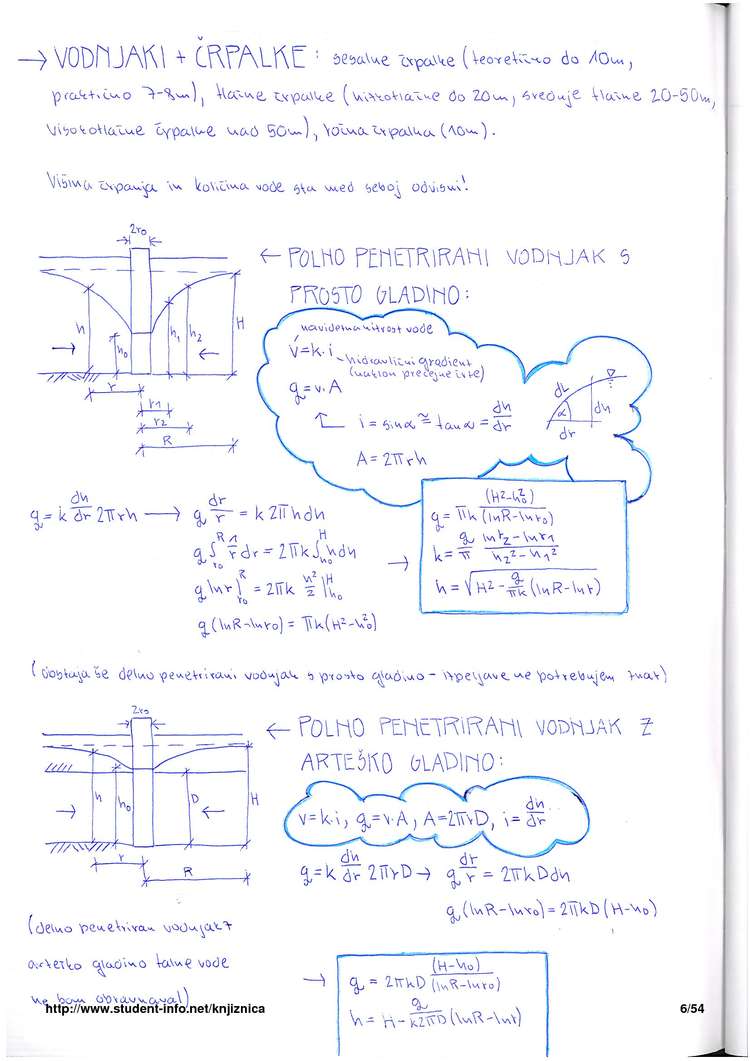 → VODNJAKI + ČRPALKE: sesalne črpalke (teoretično do 10m,
praktično 7-8m), tlačne črpalke (nizkotlačne do 20m, srednje tlačne 20-50m,
visokotlačne črpalke nad 50m), ročna črpalka (10m).
Višina črpanja in količina vode sta med seboj odvisni!
2r₀
h
h₀
h₁
h₂
H
r
r₁
r₂
R
← POLNO PENETRIRANI VODNJAK S
PROSTO GLADINO:
navidezna hitrost vode
v=k·i
hidravlični gradient
(naklon precejne črte)
q=v·A
i = sinα ≅ tanα = dh/dr
A=2πrh
dL
α
dh
dr
q = k dh/dr 2πrh → q dr/r = k2πhdh
q ∫_r₀^R 1/r dr = 2πk ∫_h₀^H hdh
q lnr]_r₀^R = 2πk h²/2 |_h₀^H
q(lnR-lnr₀) = πk(H²-h₀²)
→
q = πk (H²-h₀²)/(lnR-lnr₀)
k = q/π (lnr₂-lnr₁)/(h₂²-h₁²)
h = √(H² - q/πk (lnR-lnr))
(obstaja še delno penetrirani vodnjak s prosto gladino - izpeljave ne potrebujem znat)
2r₀
h
h₀
D
H
r
R
← POLNO PENETRIRANI VODNJAK Z
ARTEŠKO GLADINO:
v=k·i, q=v·A, A=2πrD, i= dh/dr
q = k dh/dr 2πrD → q dr/r = 2πkDdh
q(lnR-lnr₀) = 2πkD(H-h₀)
(delno penetriran vodnjak z
arteško gladino talne vode
ne bom obravnaval)
→
q = 2πkD (H-h₀)/(lnR-lnr₀)
h = H - q/k2πD (lnR-lnr)
http://www.student-info.net/knjiznica
6/54